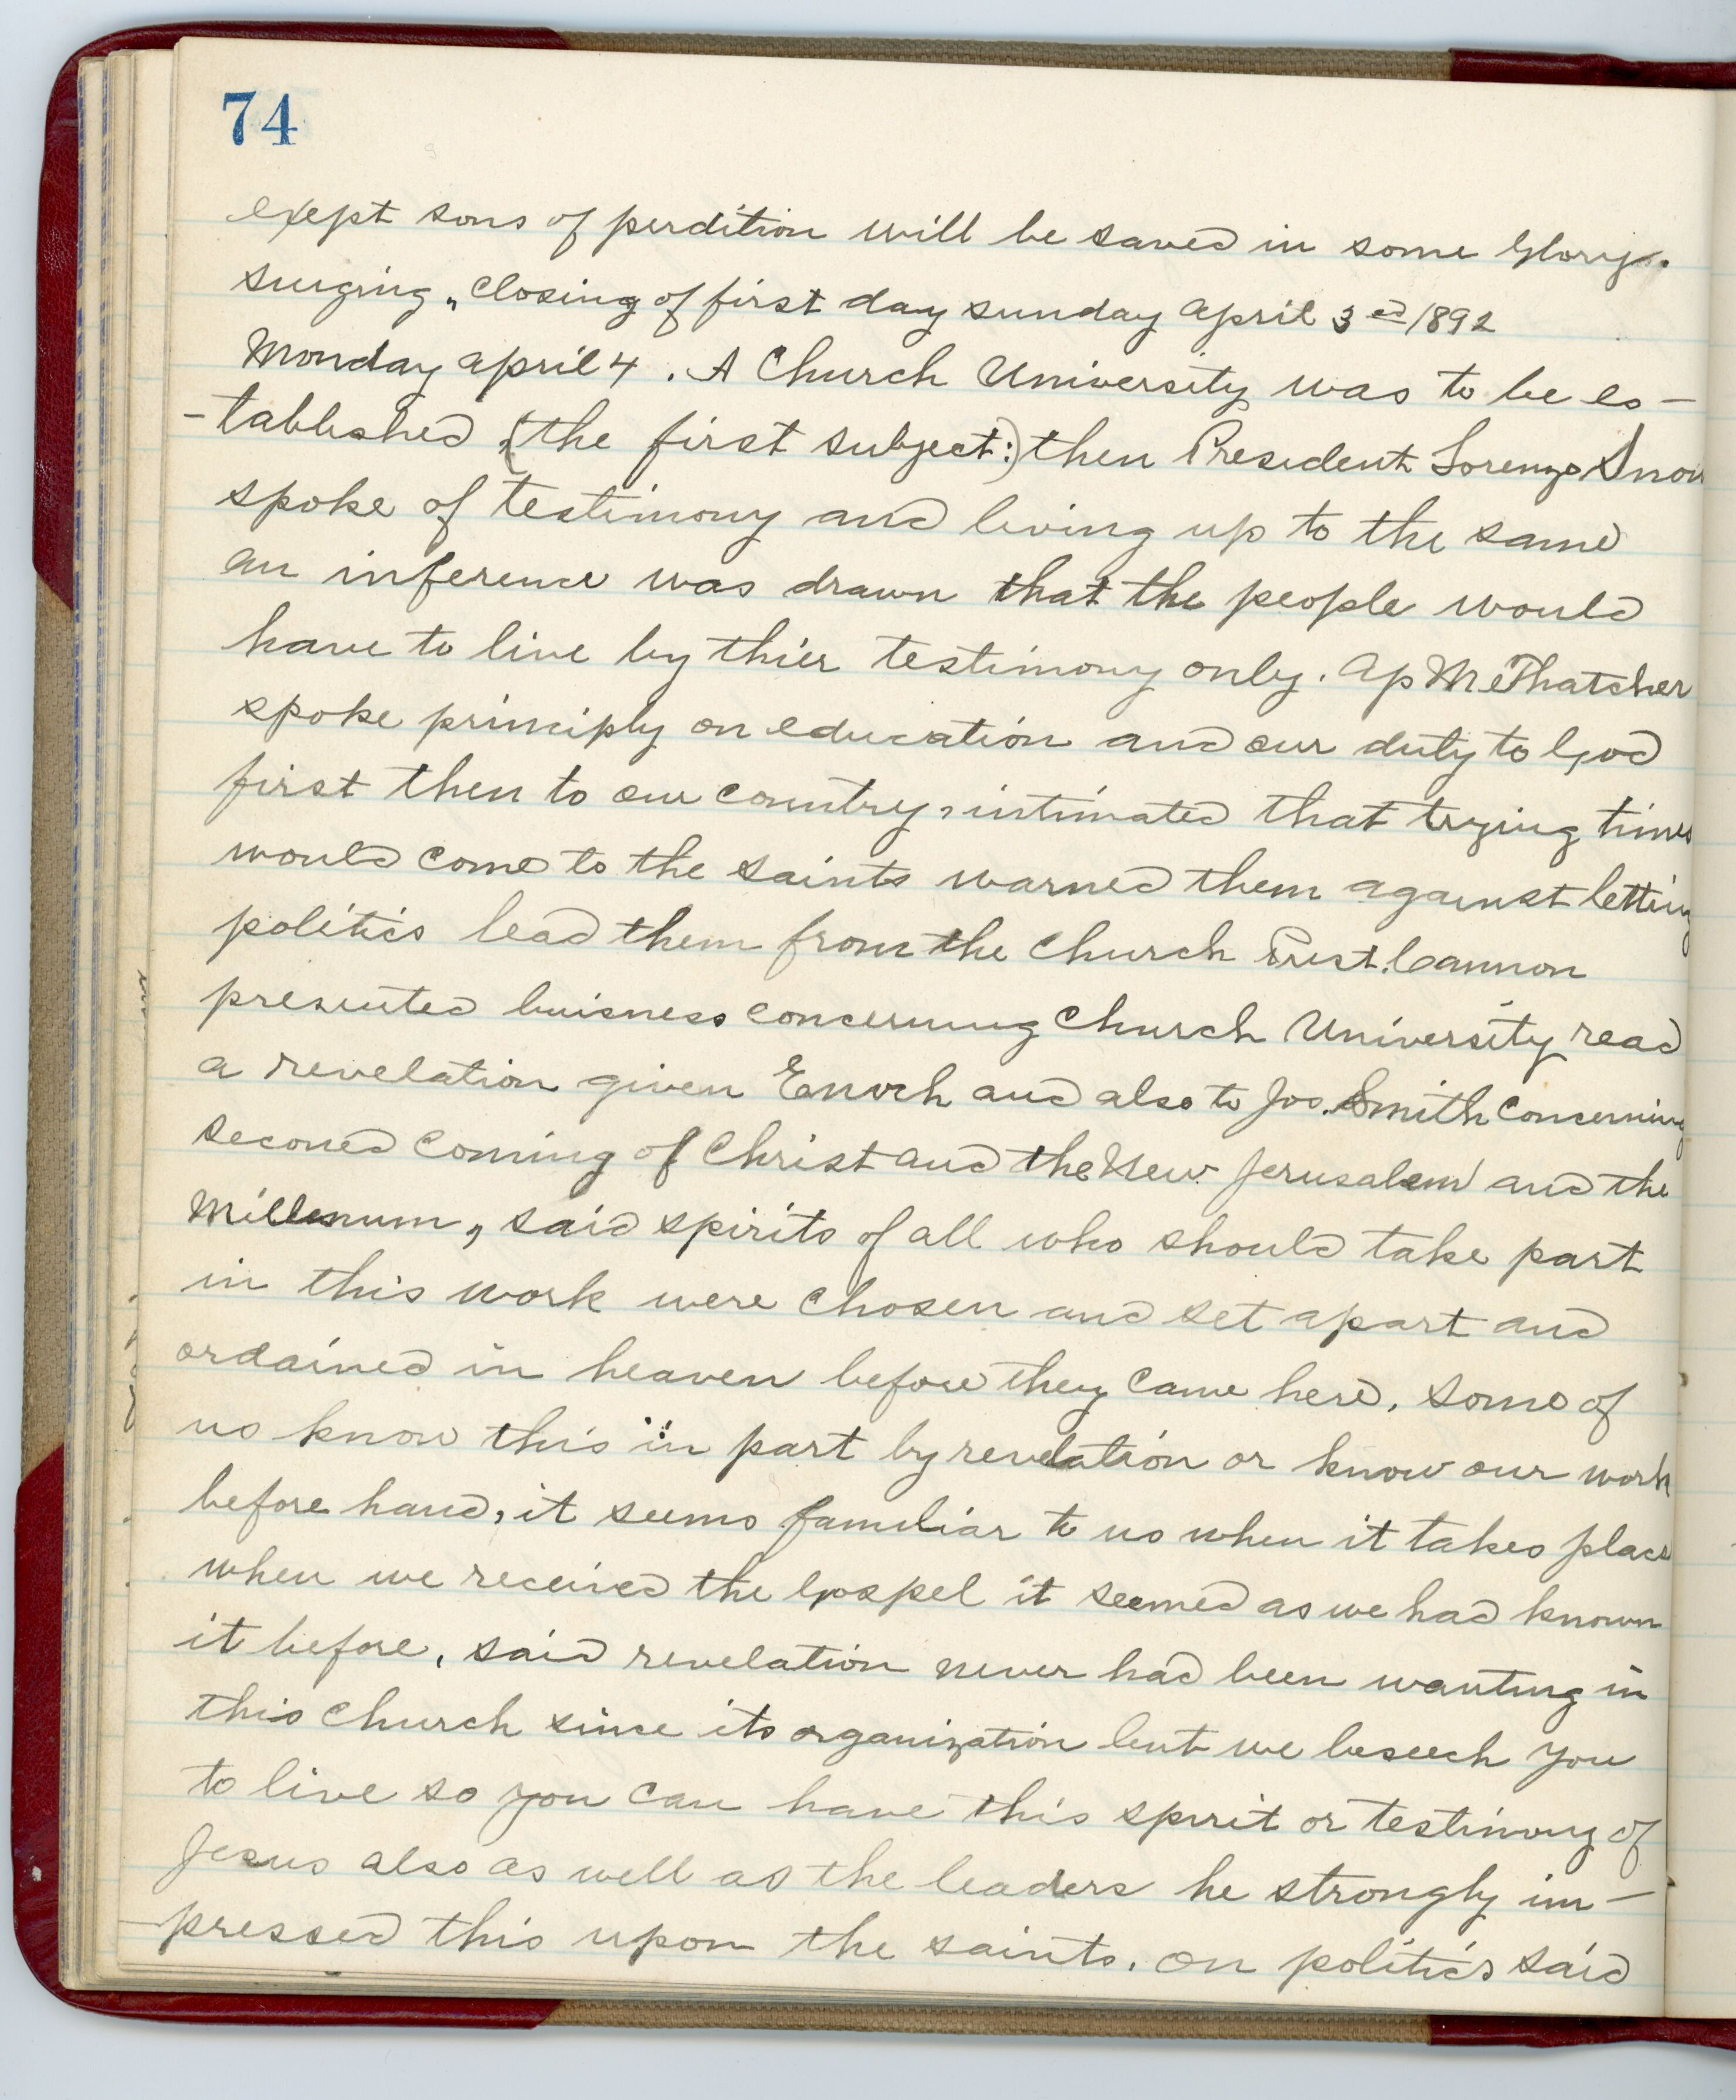 74
exept sons of perdition will be saved in some Glory.
singing „ closing of first day sunday april 3ed 1892
Monday april 4 . A Church University was to be es-
-tablished (the first subject:) then President Lorenzo Snow
spoke of testimony and living up to the same
an inference was drawn that the people would
have to live by thier testimony only. Ap M Thatcher
spoke principly on education and our duty to God
first then to our country, intimated that trying times
would come to the saints warned them against letting
politics lead them from the church Prest. Cannon
presented buisness concerning Church University read
a revelation given Enoch and also to Jos. Smith concerning
seconed coming of Christ and the New Jerusalem and the
Millenum, said spirits of all who should take part
in this work were chosen and set apart and
ordained in heaven before they came here, some of
us know this in part by revelation or know our work
before hand, it seems familiar to us when it takes place
when we received the Gospel it seemed as we had known
it before, said revelation never had been wanting in
this church since its organization but we beseech you
to live so you can have this spirit or testimony of
Jesus also as well as the leaders he strongly im-
-pressed this upon the saints. on politics said